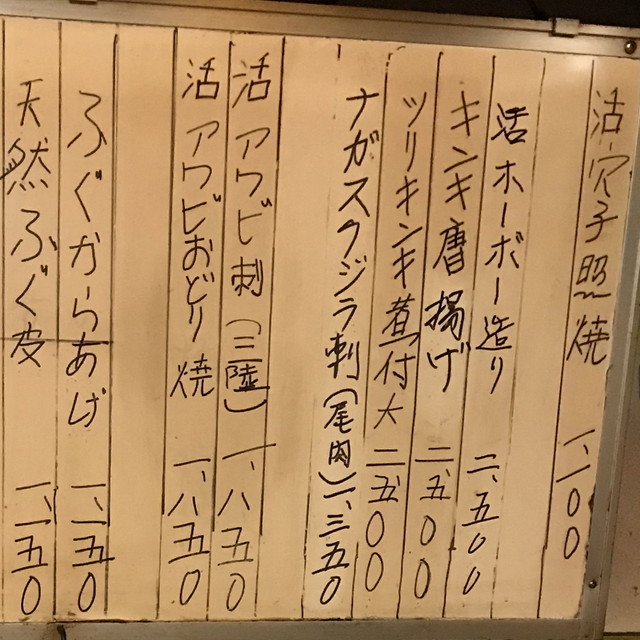 活穴子照焼 一、一〇〇
活ホーボー造り 二、五〇〇
キンキ唐揚げ 二、五〇〇
ツリキンキ煮付大 二、五〇〇
ナガスクジラ刺(尾肉)一、三五〇
活アワビ刺(三陸) 一、八五〇
活アワビおどり焼 一、八五〇
ふぐからあげ 一、一五〇
天然ふぐ皮 一、一五〇